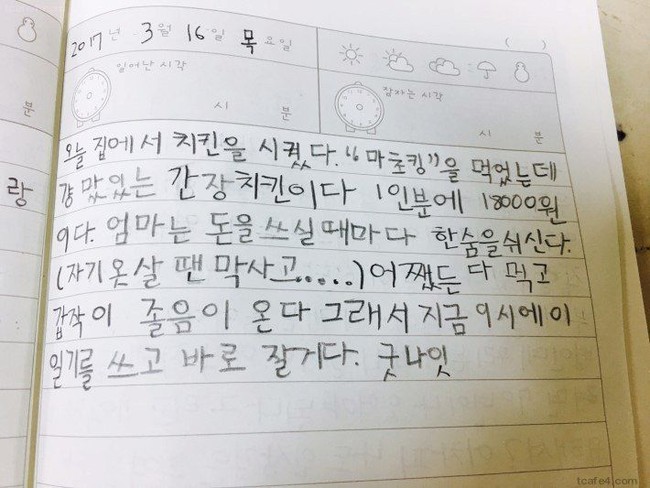 2017년 3월 16일 목요일 ( )
일어난 시각
잠자는 시각
시 분
시 분
분
랑
오늘 집에서 치킨을 시켰다. "마초킹"을 먹었는데
걍 맛있는 간장치킨이다 1인분에 18000원
이다. 엄마는 돈을 쓰실때마다 한숨을쉬신다.
(자기옷살 땐 막사고.....)어쨌든 다 먹고
갑작이 졸음이 온다 그래서 지금 9시에 이
일기를 쓰고 바로 잘거다. 굿나잇
tcafe4.com